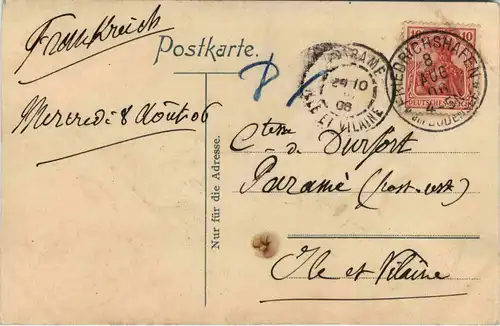 Frankreich
Postkarte.
Mercredi 8 Août 06
Nur für die Adresse.
PARAMÉ
24 10
06
ILLE ET VILAINE
10 10
DEUTSCHES REICH
FRIEDRICHSHAFEN
8
AUG
06
Ctesse de Durfort
Paramé (post. rest.)
Ile et Vilaine